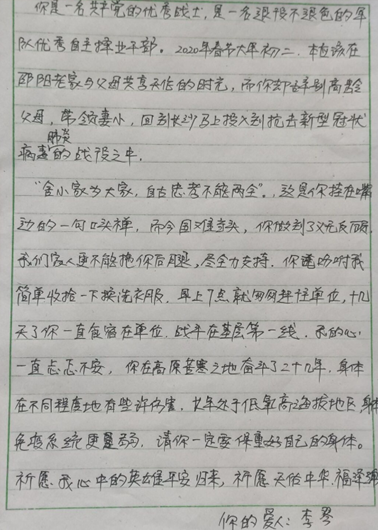 你是一名共产党的优秀战士,是一名退役不退色的军
队优秀自主择业干部。2020年春节大年初二,本应该在
邵阳老家与父母共享天伦的时光,而你却辞别高龄
父母,带领妻小,回到长沙马上投入到抗击新型冠状
病毒肺炎的战役之中。
"舍小家为大家,自古忠孝不能两全",这是你挂在嘴
边的一句口头禅,而今国难当头,你做到了义无反顾,
我们家人更不能拖你后腿,尽全力支持。你嘱咐我
简单收拾一下换洗衣服,早上7点就匆匆赶往单位,十几
天了你一直食宿在单位,战斗在基层第一线,我的心
一直忐忑不安,你在高原苦寒之地奋斗了二十几年,身体
在不同程度地有些许伤害,长年处于低氧高海拔地区,身体
免疫系统更显弱,请你一定要保重好自己的身体。
祈愿我心中的英雄平安归来,祈愿天佑中华,福泽
你的爱人:李琴